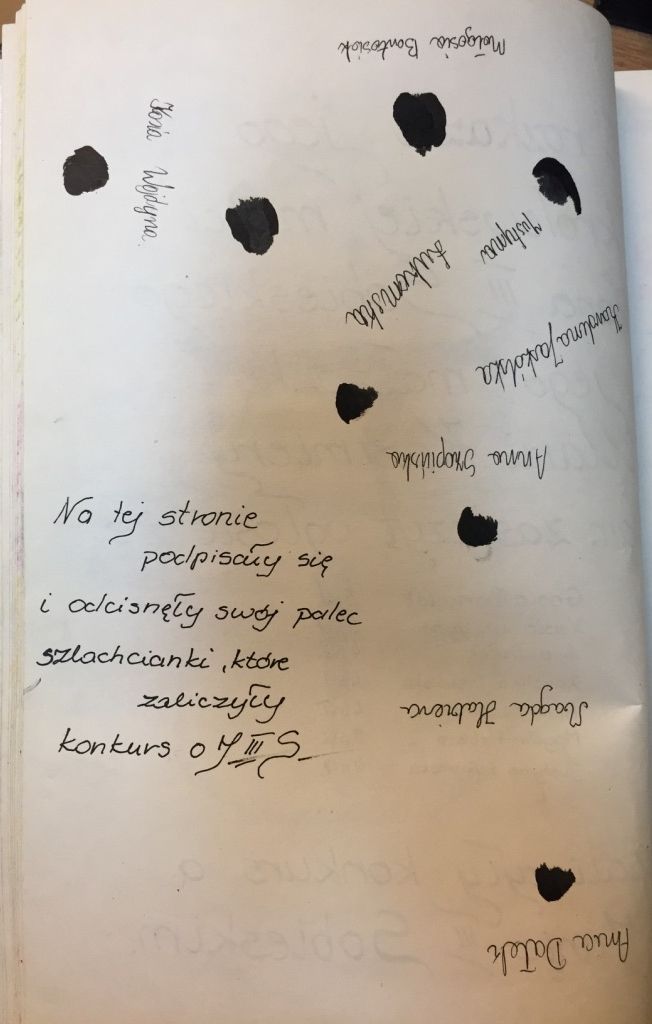 Małgosia Bartosiak
Kasia Wojdyna
Justyna Łukomska
Karolina Jaskólska
Anna Skopińska
Na tej stronie
podpisały się
i odcisnęły swój palec
szlachcianki, które
zaliczyły
konkurs o J III S
Magda
Ania Dałek